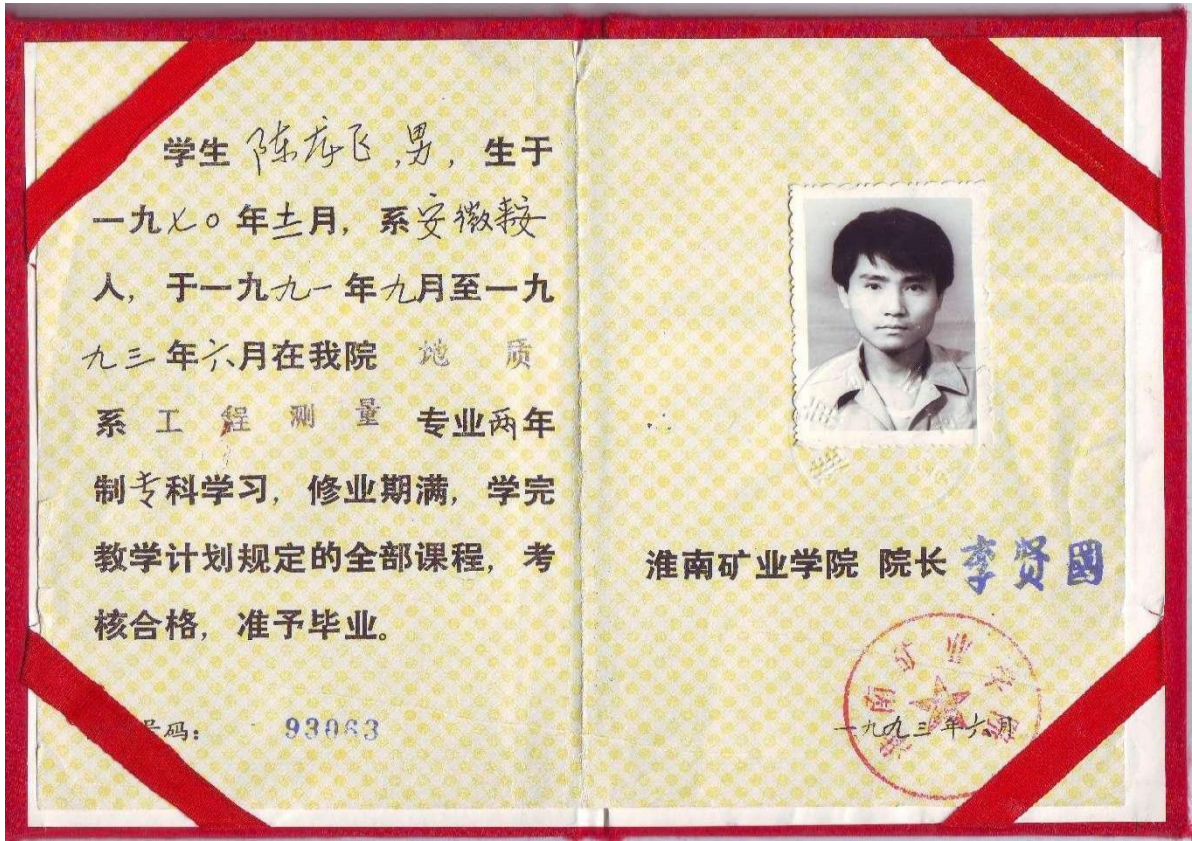 学生 陈庆飞,男, 生于
一九七〇年十二月, 系安徽
人, 于一九九一年九月至一九
九三年六月在我院 地质
系 工程测量 专业两年
制专科学习, 修业期满, 学完
教学计划规定的全部课程, 考
核合格, 准予毕业。
号码: 93063
淮南矿业学院 院长 李贤国
淮南矿业学院
一九九三年六月